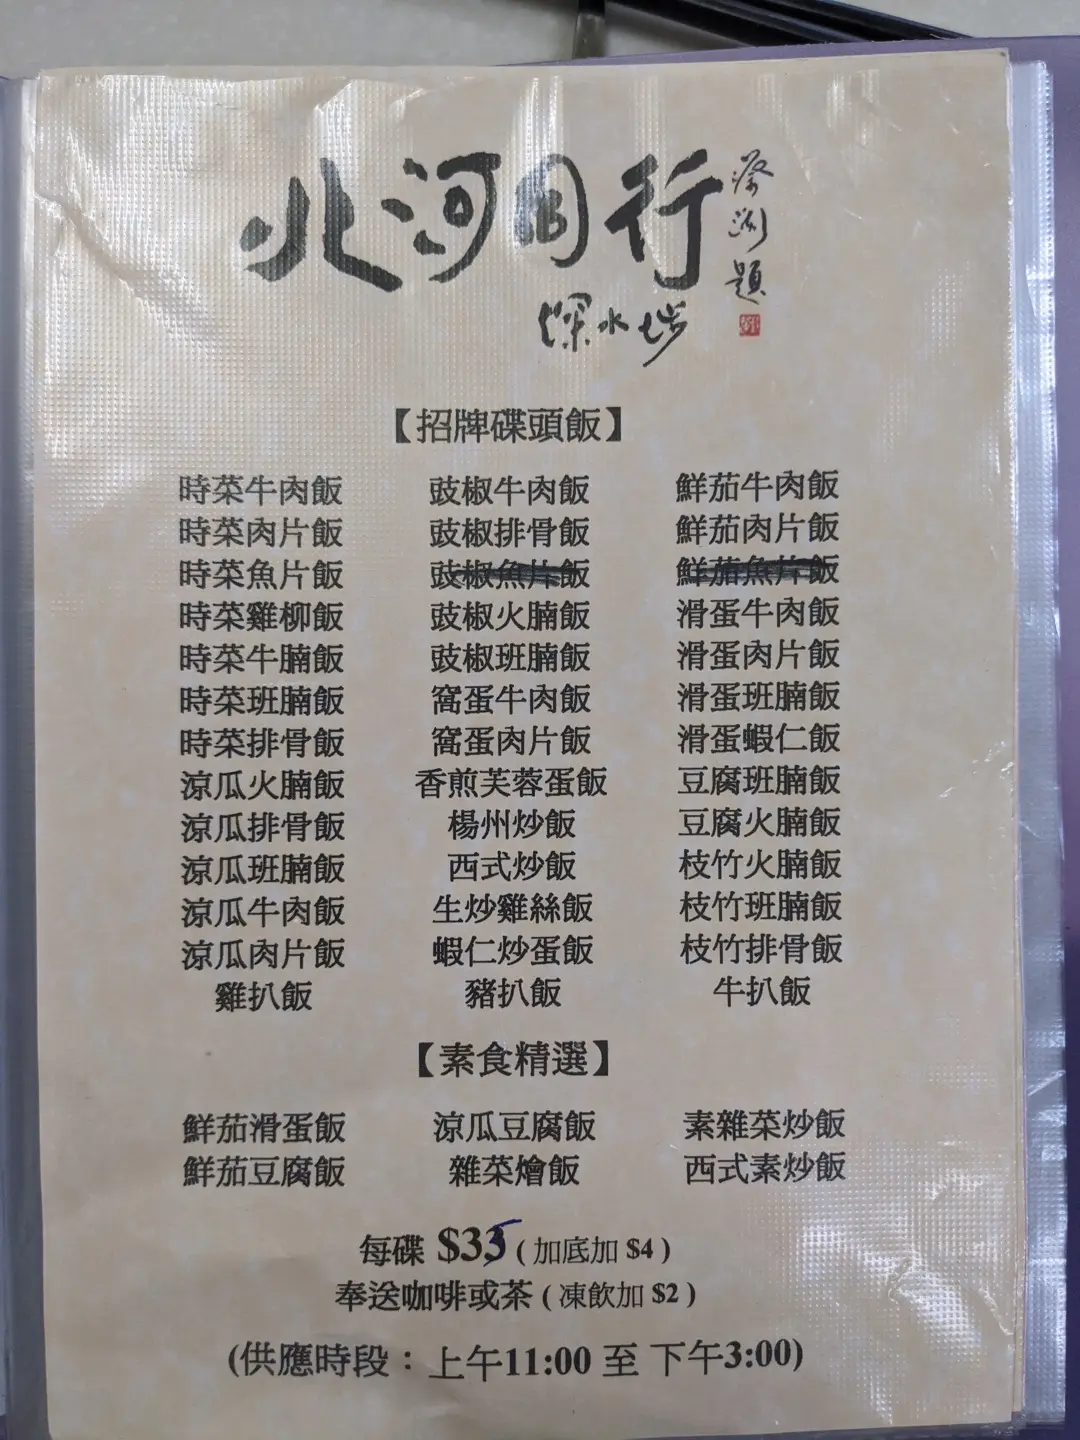 北河同行
蔡瀾題
深水埗
【招牌碟頭飯】
時菜牛肉飯 豉椒牛肉飯 鮮茄牛肉飯
時菜肉片飯 豉椒排骨飯 鮮茄肉片飯
時菜魚片飯 豉椒魚片飯 鮮茄魚片飯
時菜雞柳飯 豉椒火腩飯 滑蛋牛肉飯
時菜牛腩飯 豉椒班腩飯 滑蛋肉片飯
時菜班腩飯 窩蛋牛肉飯 滑蛋班腩飯
時菜排骨飯 窩蛋肉片飯 滑蛋蝦仁飯
涼瓜火腩飯 香煎芙蓉蛋飯 豆腐班腩飯
涼瓜排骨飯 楊州炒飯 豆腐火腩飯
涼瓜班腩飯 西式炒飯 枝竹火腩飯
涼瓜牛肉飯 生炒雞絲飯 枝竹班腩飯
涼瓜肉片飯 蝦仁炒蛋飯 枝竹排骨飯
雞扒飯 豬扒飯 牛扒飯
【素食精選】
鮮茄滑蛋飯 涼瓜豆腐飯 素雜菜炒飯
鮮茄豆腐飯 雜菜燴飯 西式素炒飯
每碟 $35 ( 加底加 $4 )
奉送咖啡或茶 ( 凍飲加 $2 )
(供應時段：上午11:00 至 下午3:00)